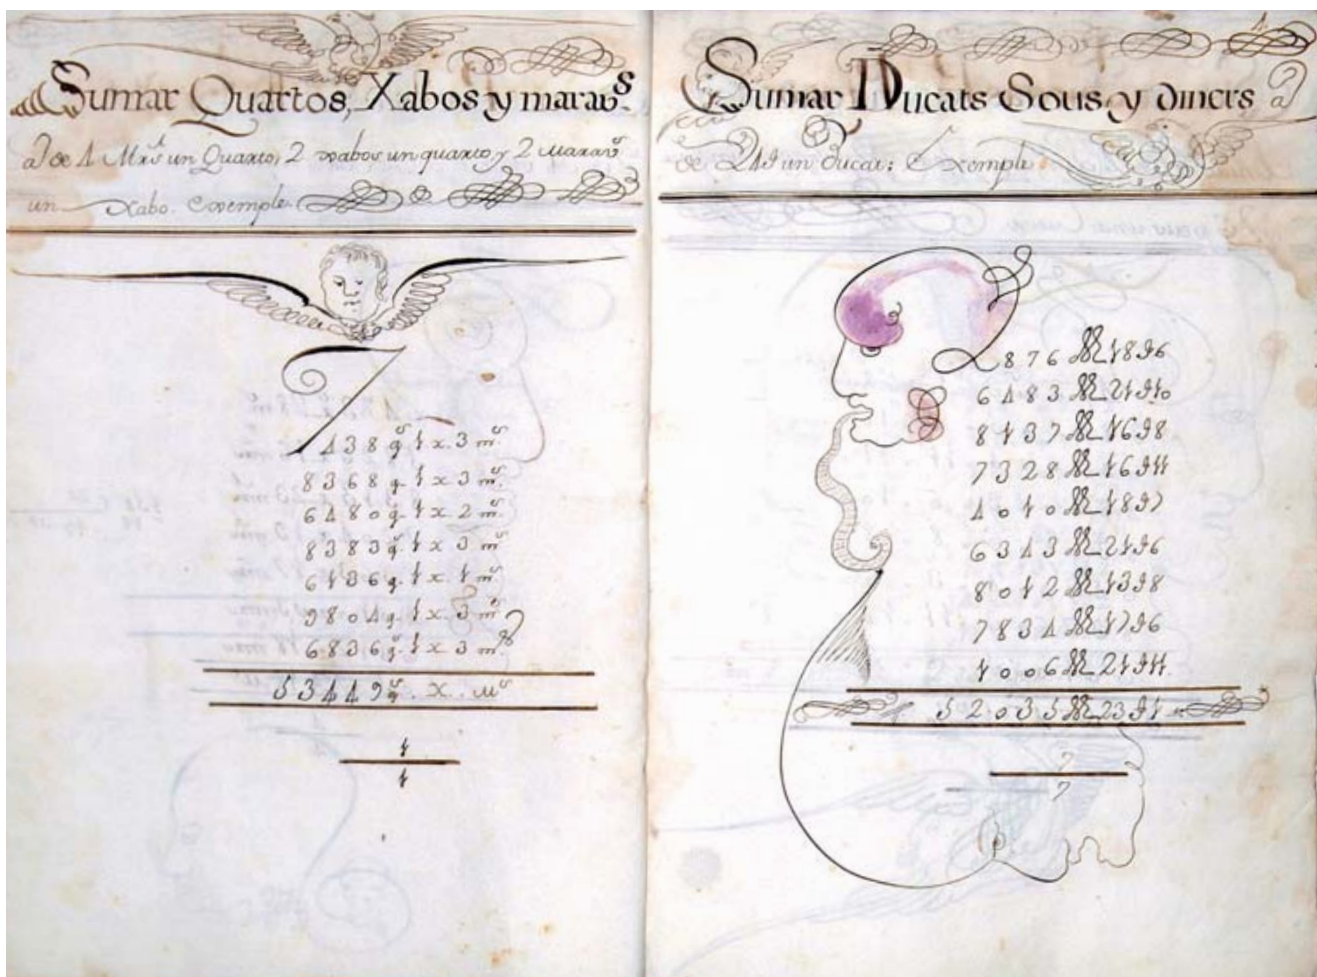 Sumar Quartos, Xabos y marav.s
a de 4 Mrs un Quarto, 2 xabos un quarto y 2 marav.s
un Xabo. Exemple.
7438 q.s 1 x. 3 m.s
8368 q. 1 x 3 m.s
6480 q. 1 x 2 m.s
8383 q. 1 x 3 m.s
6136 q. 1 x. 1 m.s
9804 q. 1 x. 3 m.s
6836 q. 1 x 3 m.s
53449 q.s x. m.s
1
1
Sumar Ducats Sous, y diners
de 24 s un ducat; Exemple
2876 ₶ 18 s 6
6483 ₶ 21 s 10
8137 ₶ 16 s 8
7328 ₶ 16 s 11
4010 ₶ 18 s 7
6343 ₶ 21 s 6
8012 ₶ 13 s 8
7834 ₶ 17 s 6
1006 ₶ 21 s 11
52035 ₶ 23 s 1
7
7